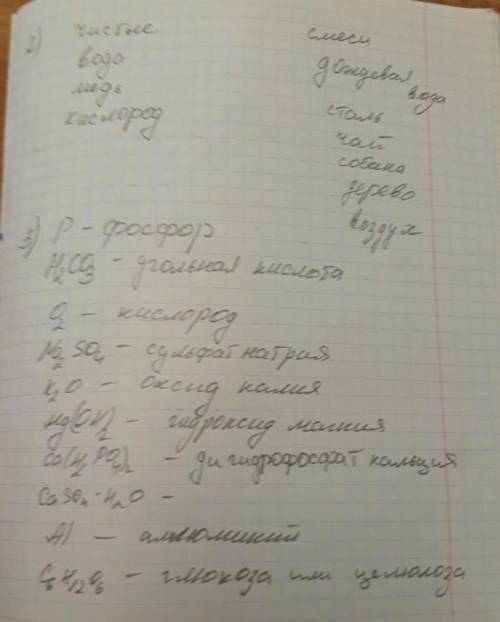 2) чистые смеси
вода дождевая
медь вода
кислород сталь
чай
собака
дерево
воздух
3) P - фосфор
H2CO3 - угольная кислота
O2 - кислород
Na2SO4 - сульфат натрия
K2O - оксид калия
Mg(OH)2 - гидроксид магния
Ca(H2PO4)2 - дигидрофосфат кальция
CaSO4·H2O -
Al - алюминий
C6H12O6 - глюкоза или цемолоза